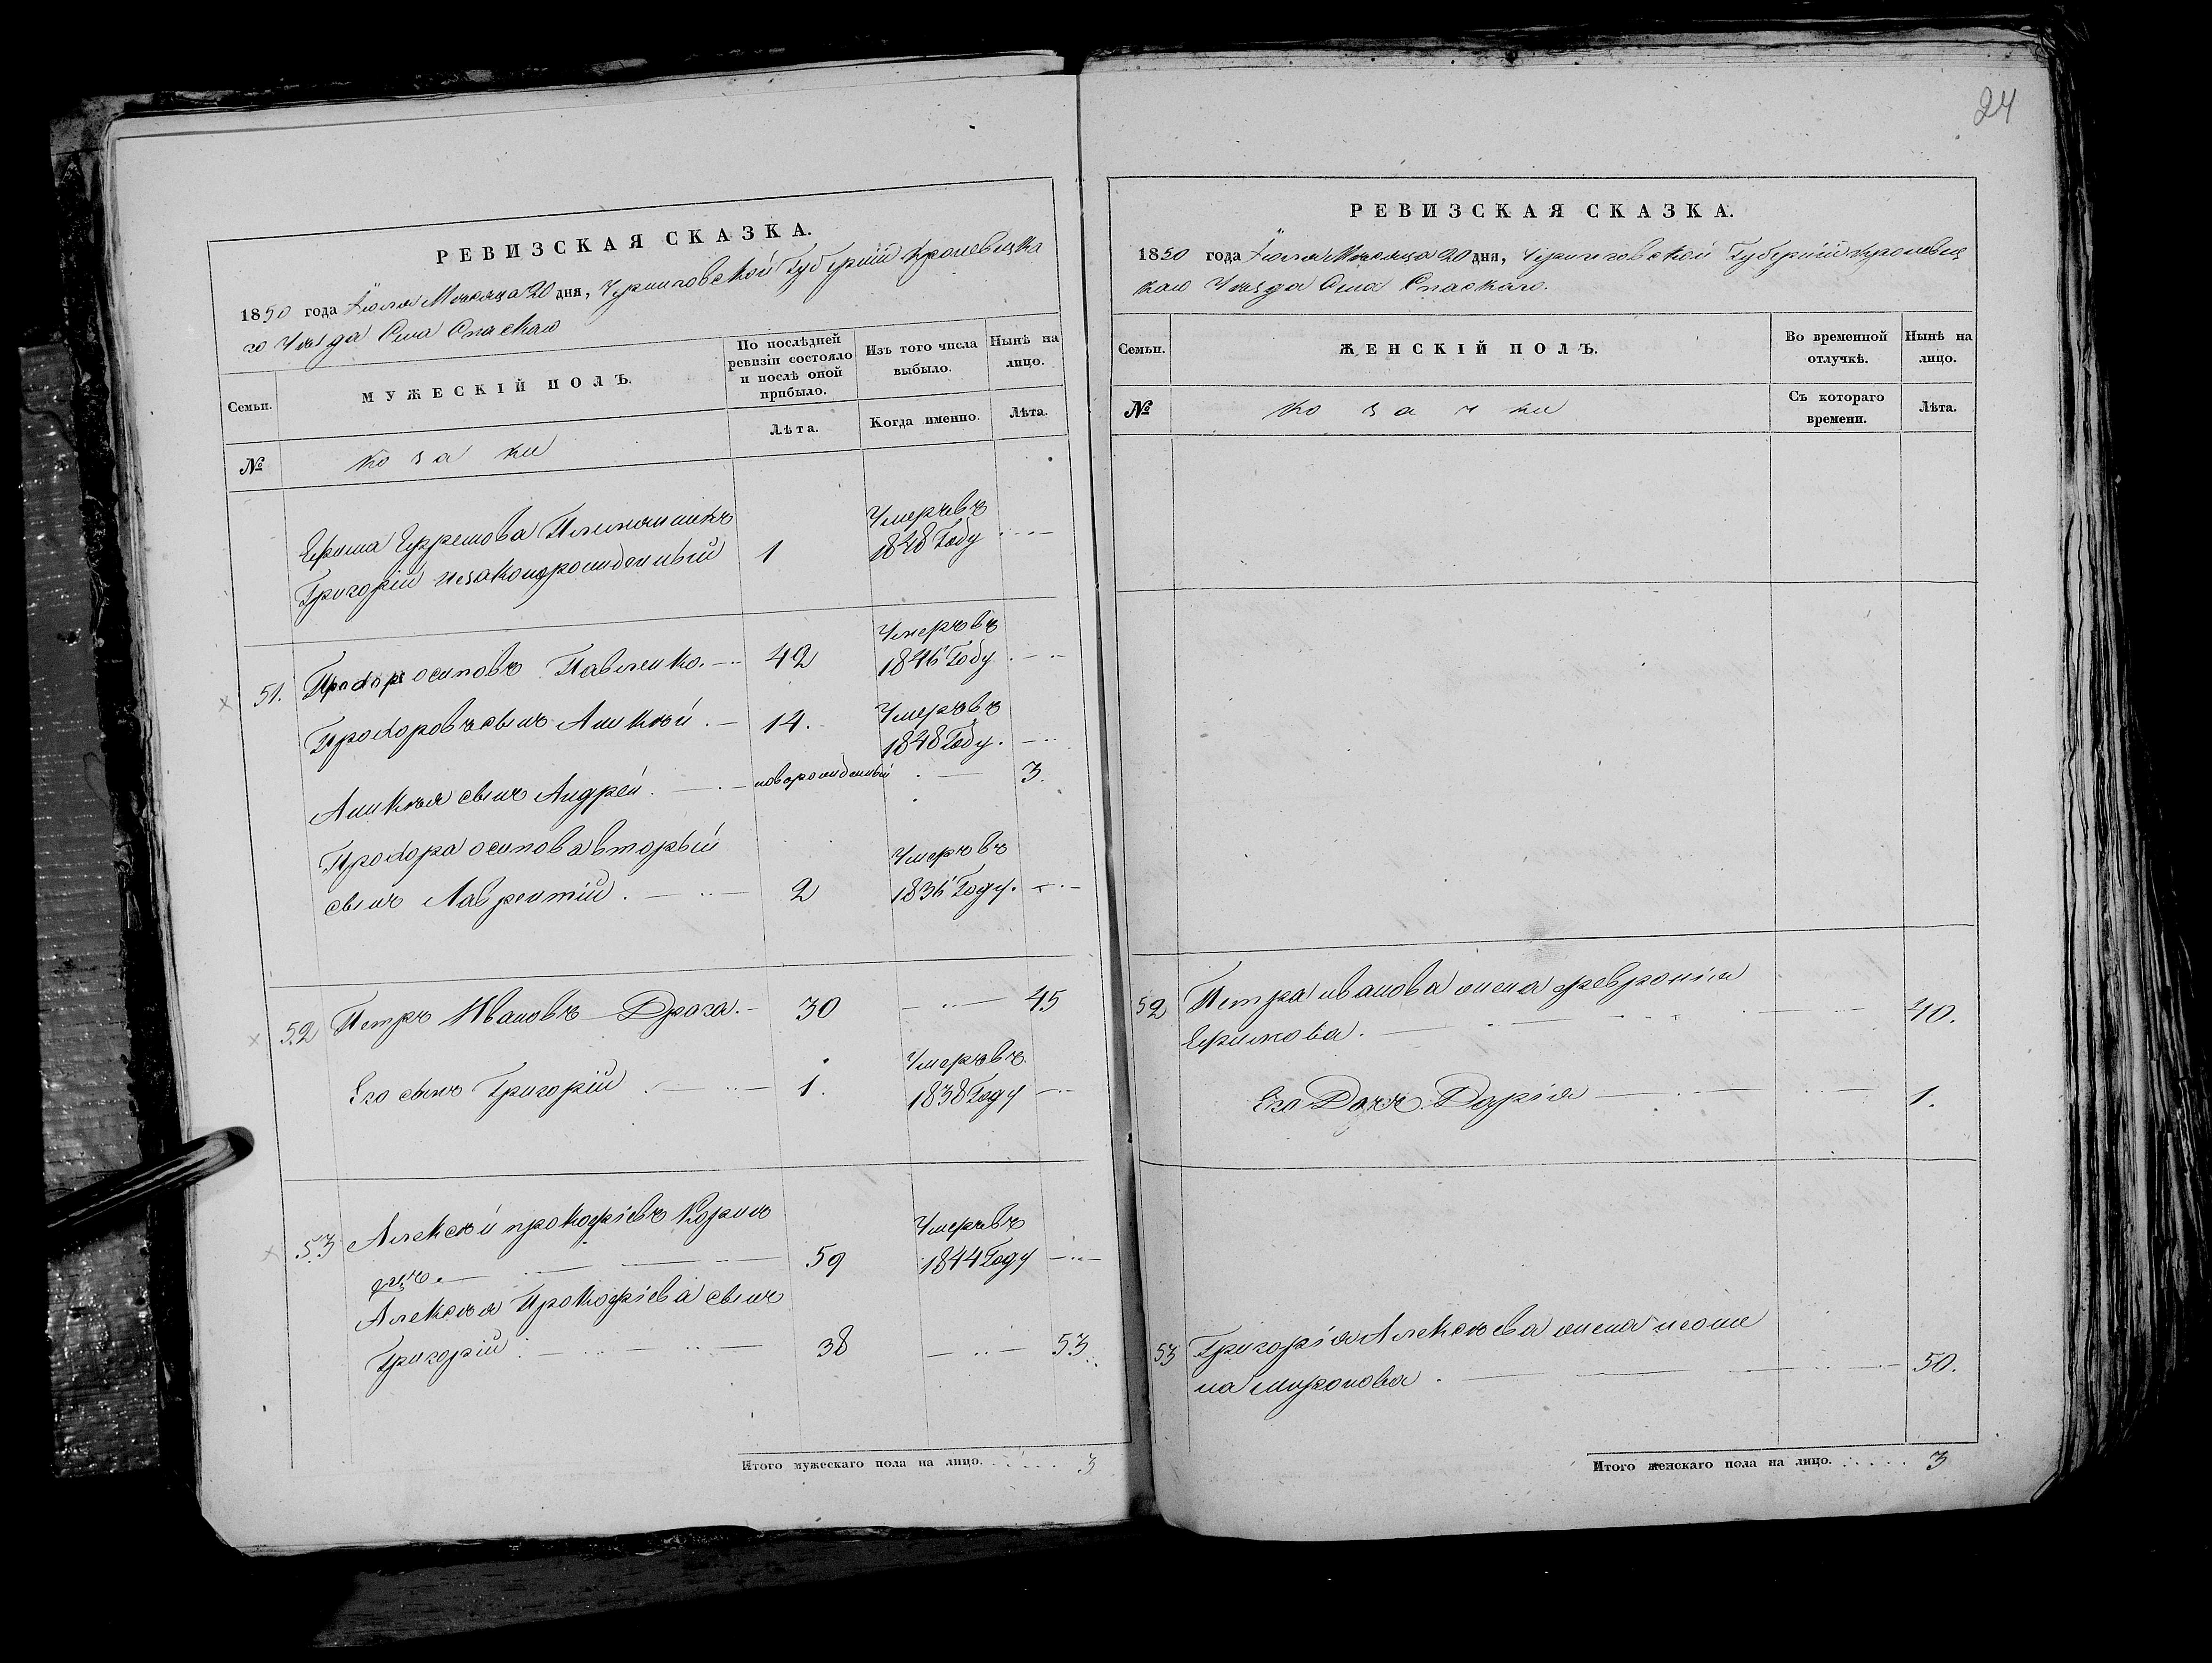 24
РЕВИЗСКАЯ СКАЗКА.
1850 года Іюля Месяца 20 дня, Черниговской Губерніи Кролевецка
го Уезда Села Спаскаго
Семьи.
МУЖЕСКІЙ ПОЛЪ.
По послѣдней
ревизіи состояло
и послѣ оной
прибыло.
Изъ того числа
выбыло.
Нынѣ на
лицо.
Лѣта.
Когда именно.
Лѣта.
№
козаки
Ефима Ефремова Племянникъ
Григорій незаконорожденный 1
Умеръ въ
1848 Году
51. Прохоръ осиповъ Павленко. 42
Умеръ въ
1846 Году
Прохоровъ сынъ Аникѣй. 14.
Умеръ въ
1848 Году.
Аникѣя сынъ Андрей. новорожденный 3.
Прохора осипова вторый
сынъ Лаврентій. 2
Умеръ въ
1836 Году.
52 Петръ Ивановъ Дрога. 30 45
Его сынъ Григорій 1.
Умеръ въ
1838 Году
53 Алексѣй прокофіевъ
59
Умеръ въ
1844 Году
Алексѣя Прокофіева сынъ
Григорій 38 53
Итого мужескаго пола на лицо. 3
РЕВИЗСКАЯ СКАЗКА.
1850 года Іюля Месяца 20 дня, Черниговской Губерніи Кролевец
каго Уезда Села Спаскаго.
Семьи.
ЖЕНСКІЙ ПОЛЪ.
Во временной
отлучкѣ.
Нынѣ на
лицо.
№
козачки
Съ котораго
времени.
Лѣта.
52 Петра иванова жена февронія
Ефимова. 40.
Его Дочь Дарія 1.
53 Григорія Алексѣева жена
миронова 50.
Итого женскаго пола на лицо. 3